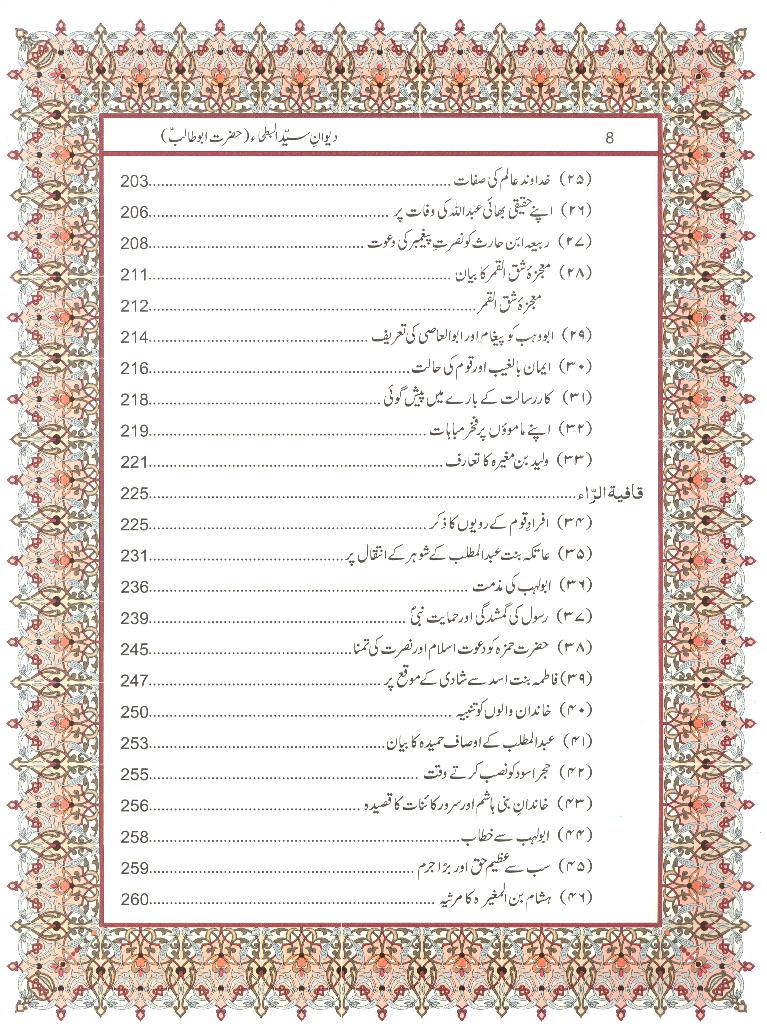 8 دیوانِ سیّد البطحاء (حضرت ابوطالبؑ)
(۲۵) خداوند عالم کی صفات ........ 203
(۲۶) اپنے حقیقی بھائی عبداللہ کی وفات پر ........ 206
(۲۷) ربیعہ ابن حارث کو نصرتِ پیغمبر کی دعوت ........ 208
(۲۸) معجزۂ شق القمر کا بیان ........ 211
معجزۂ شق القمر ........ 212
(۲۹) ابووہب کو پیغام اور ابوالعاصی کی تعریف ........ 214
(۳۰) ایمان بالغیب اور قوم کی حالت ........ 216
(۳۱) کار رسالت کے بارے میں پیش گوئی ........ 218
(۳۲) اپنے ماموؤں پر فخر مباہات ........ 219
(۳۳) ولید بن مغیرہ کا تعارف ........ 221
قافیة الرّاء ........ 225
(۳۴) افرادِ قوم کے رویوں کا ذکر ........ 225
(۳۵) عاتکہ بنت عبدالمطلب کے شوہر کے انتقال پر ........ 231
(۳۶) ابولہب کی مذمت ........ 236
(۳۷) رسول کی گمشدگی اور حمایت نبیؐ ........ 239
(۳۸) حضرت حمزہ کو دعوت اسلام اور نصرت کی تمنا ........ 245
(۳۹) فاطمہ بنت اسد سے شادی کے موقع پر ........ 247
(۴۰) خاندان والوں کو تنبیہ ........ 250
(۴۱) عبدالمطلب کے اوصاف حمیدہ کا بیان ........ 253
(۴۲) حجر اسود کو نصب کرتے وقت ........ 255
(۴۳) خاندانِ بنی ہاشم اور سرور کائنات کا قصیدہ ........ 256
(۴۴) ابولہب سے خطاب ........ 258
(۴۵) سب سے عظیم حق اور بڑا جرم ........ 259
(۴۶) ہشام بن المغیرہ کا مرثیہ ........ 260